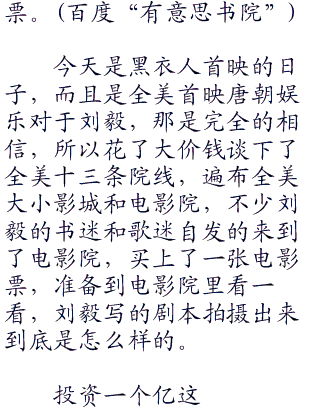 票。(百度“有意思书院”)
今天是黑衣人首映的日
子，而且是全美首映唐朝娱
乐对于刘毅，那是完全的相
信，所以花了大价钱谈下了
全美十三条院线，遍布全美
大小影城和电影院，不少刘
毅的书迷和歌迷自发的来到
了电影院，买上了一张电影
票，准备到电影院里看一
看，刘毅写的剧本拍摄出来
到底是怎么样的。
投资一个亿这